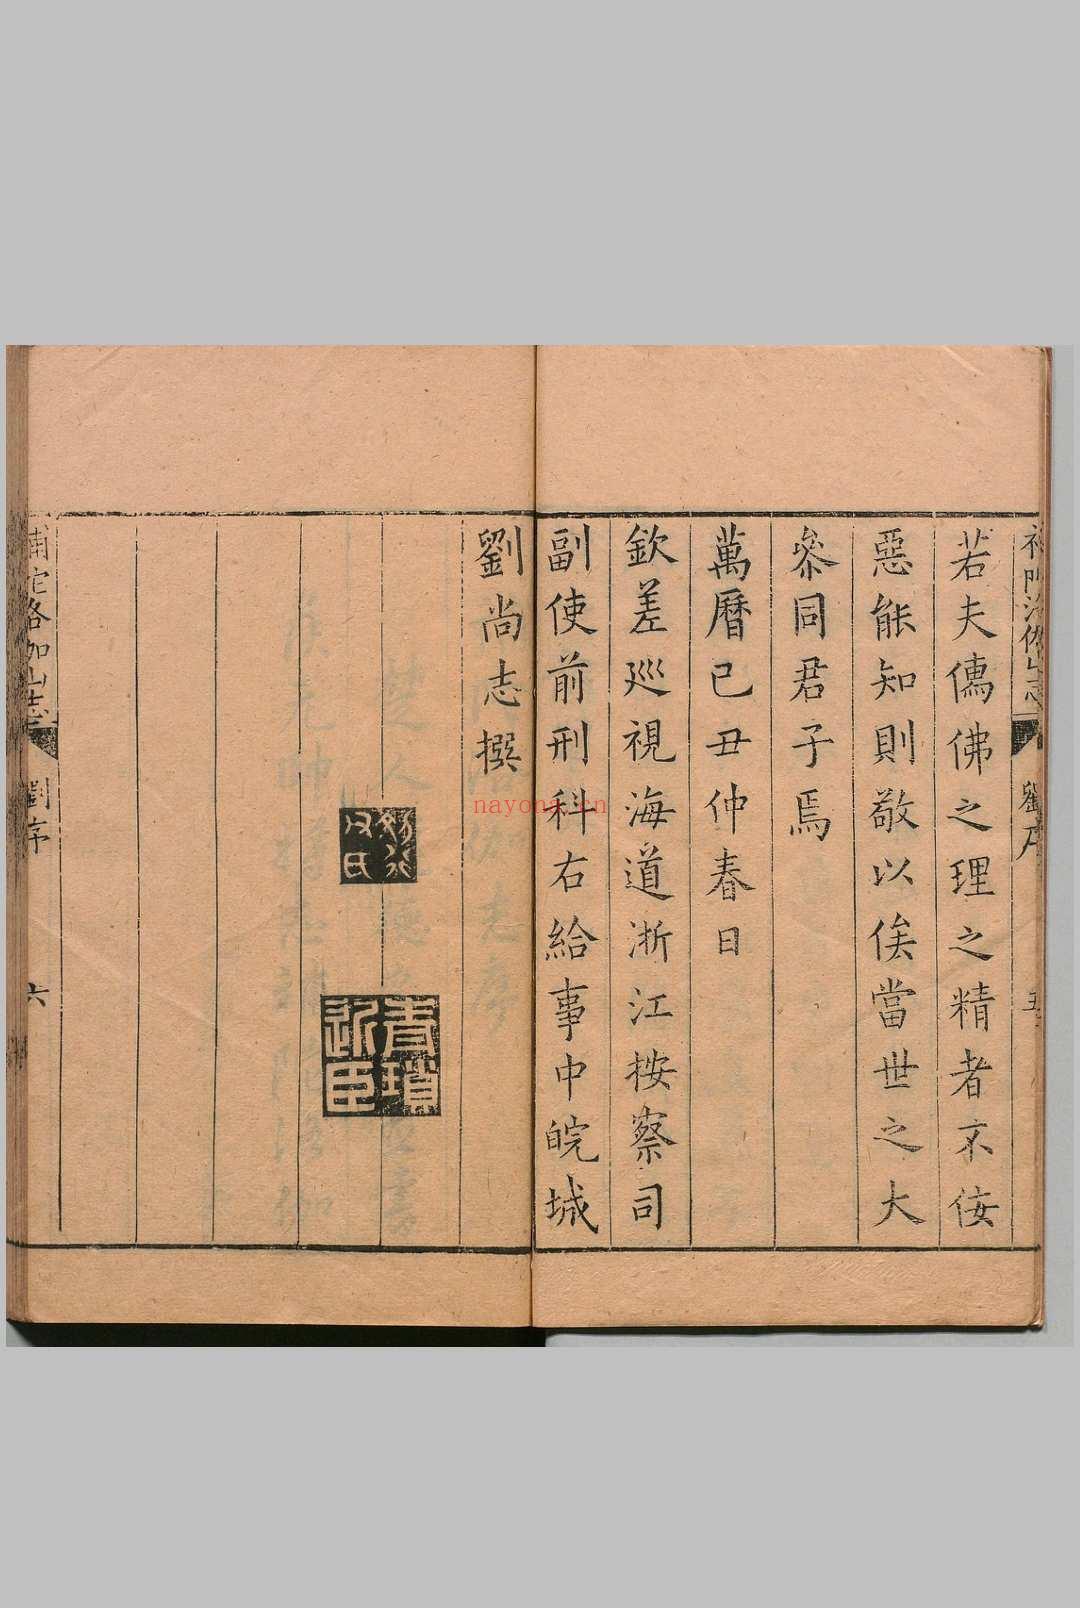 若夫儒佛之理之精者不佞
惡能知則敬以俟當世之大
叅同君子焉
萬曆己丑仲春日
欽差巡視海道浙江按察司
副使前刑科右給事中皖城
劉尚志撰
青瑣近臣
補陀洛伽山志
劉序
六
nayona.cn